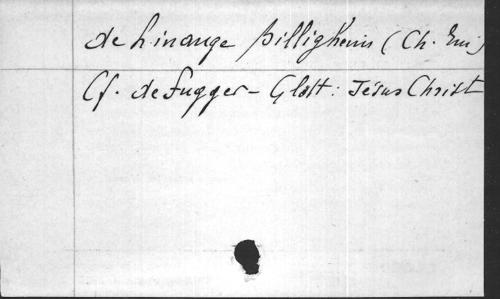 de Linange Billigheim (Ch. Em.)
Cf. de Fugger - Glött: Jésus Christ